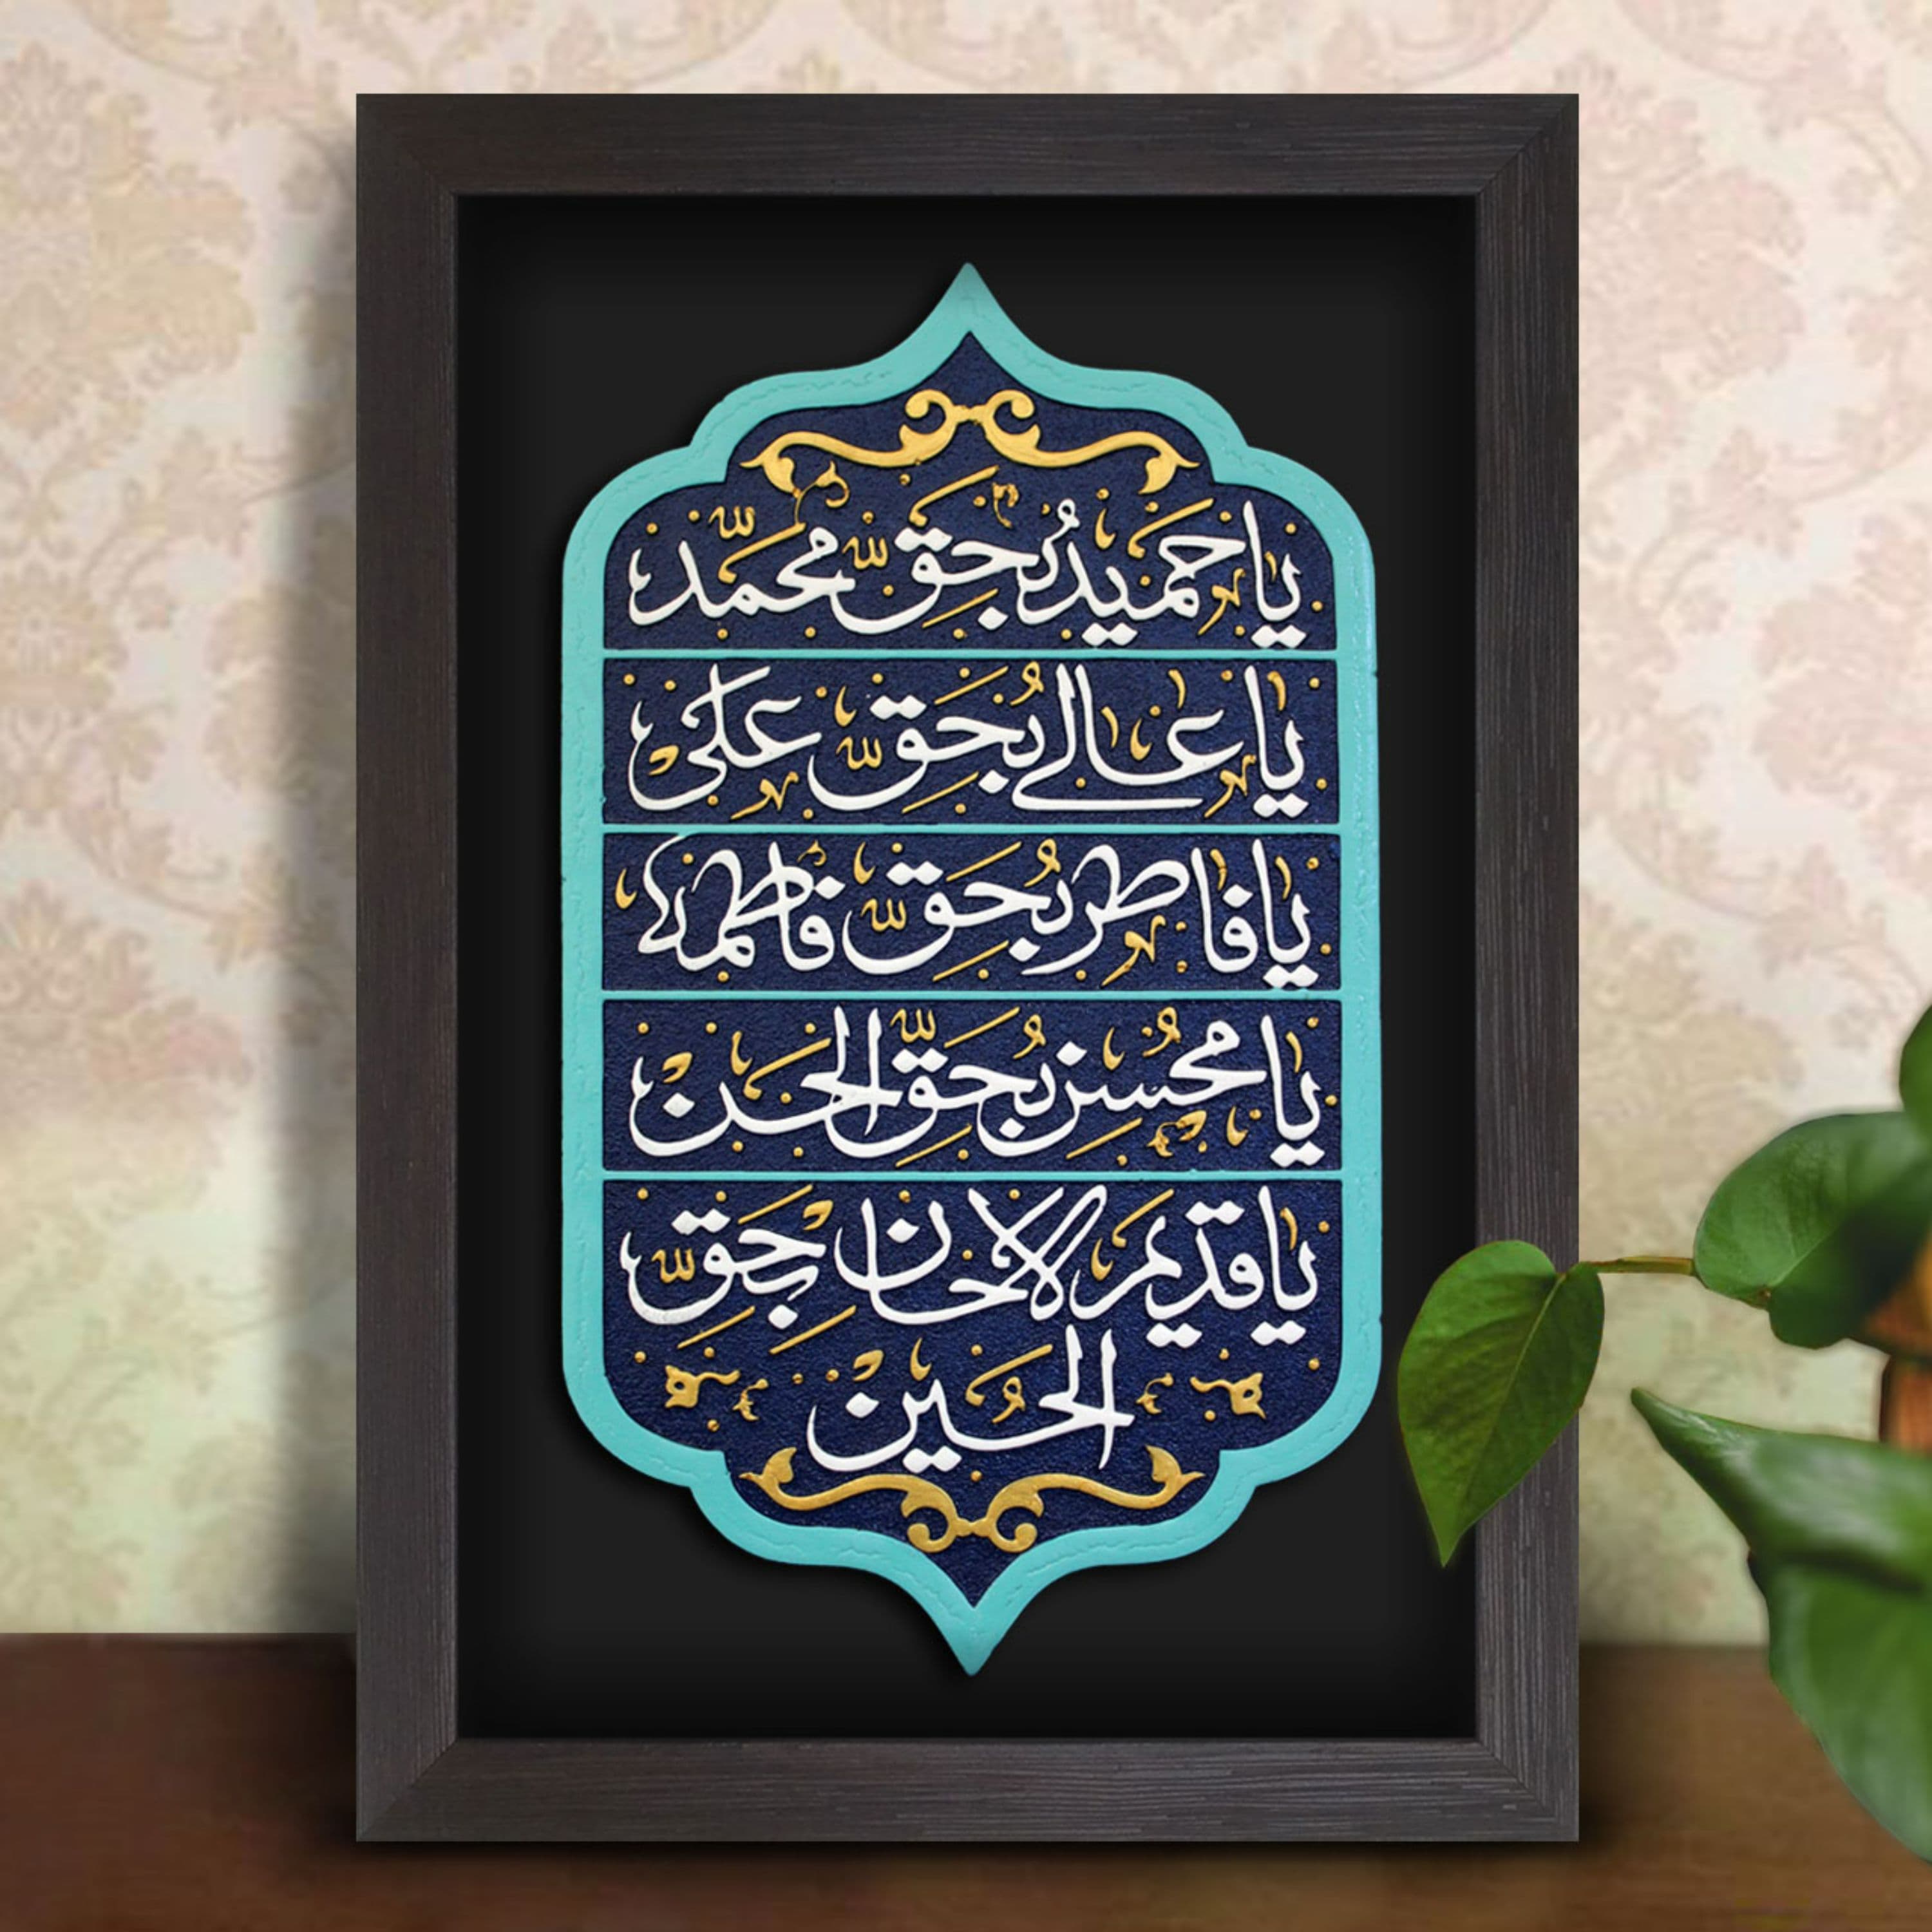 يا حميدُ بحقّ محمّد
يا عالي بحقّ علي
يا فاطر بحقّ فاطمة
يا محسن بحقّ الحسن
يا قديم الاحسان بحقّ
الحسين